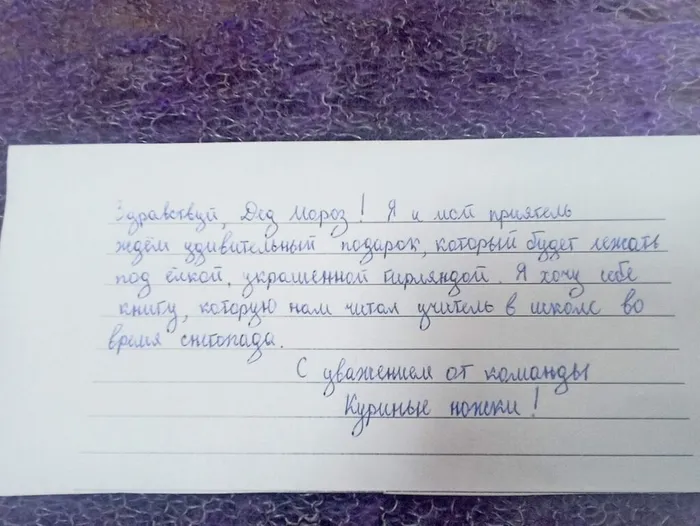 Здравствуй, Дед Мороз! Я и мой приятель
ждём удивительный подарок, который будет лежать
под ёлкой, украшенной гирляндой. Я хочу себе
книгу, которую нам читал учитель в школе во
время снегопада.
С уважением от команды
Куриные ножки!